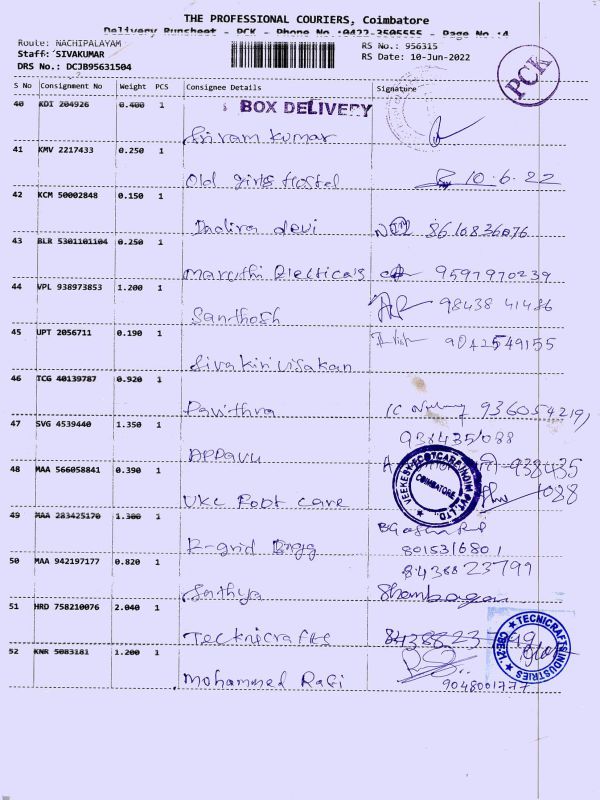 THE PROFESSIONAL COURIERS, Coimbatore
Delivery Runsheet - PCK - Phone No :0422-3505555 - Page No.:4
Route: NACHIPALAYAM
RS No.: 956315
Staff: SIVAKUMAR
RS Date: 10-Jun-2022
DRS No.: DCJB95631504
PCK
S No Consignment No Weight PCS Consignee Details Signature
40 KDI 204926 0.400 1
BOX DELIVERY
Sriram Kumar
41 KMV 2217433 0.250 1
Old girls Hostel 10.6.22
42 KCM 50002848 0.150 1
Indira devi
43 BLR 5301101104 0.250 1
Maruthi Electicals 9597970239
44 VPL 938973853 1.200 1
Santhosh 98438 41486
45 UPT 2056711 0.190 1
9042549155
46 TCG 40139787 0.920 1
Pavithra
47 SVG 4539440 1.350 1
APPavu 938435
48 MAA 566058841 0.390 1
VEEKESY FOOTCARE (INDIA) PVT. LTD.
COIMBATORE
UKC Foot Care
49 MAA 283425170 1.300 1
8015316801
50 MAA 942197177 0.820 1
8438823799
Sathya
51 HRD 758210076 2.040 1
Tecknicrafts
TECNICRAFTS INDUSTRIES
CBE-21.
52 KNR 5083181 1.200 1
Mohammed Rafi 9048001777